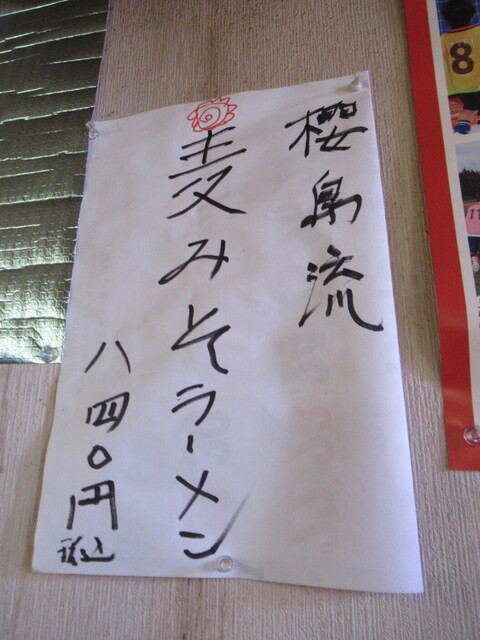 櫻島流
麦みそラーメン
八四〇円
税込
8
11